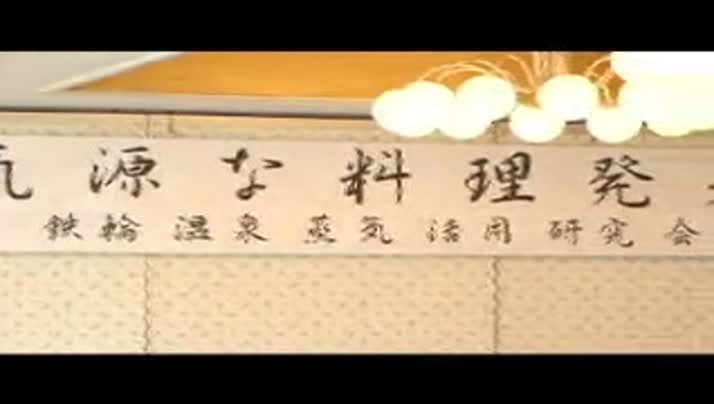 気源な料理発
鉄輪温泉蒸気活用研究会